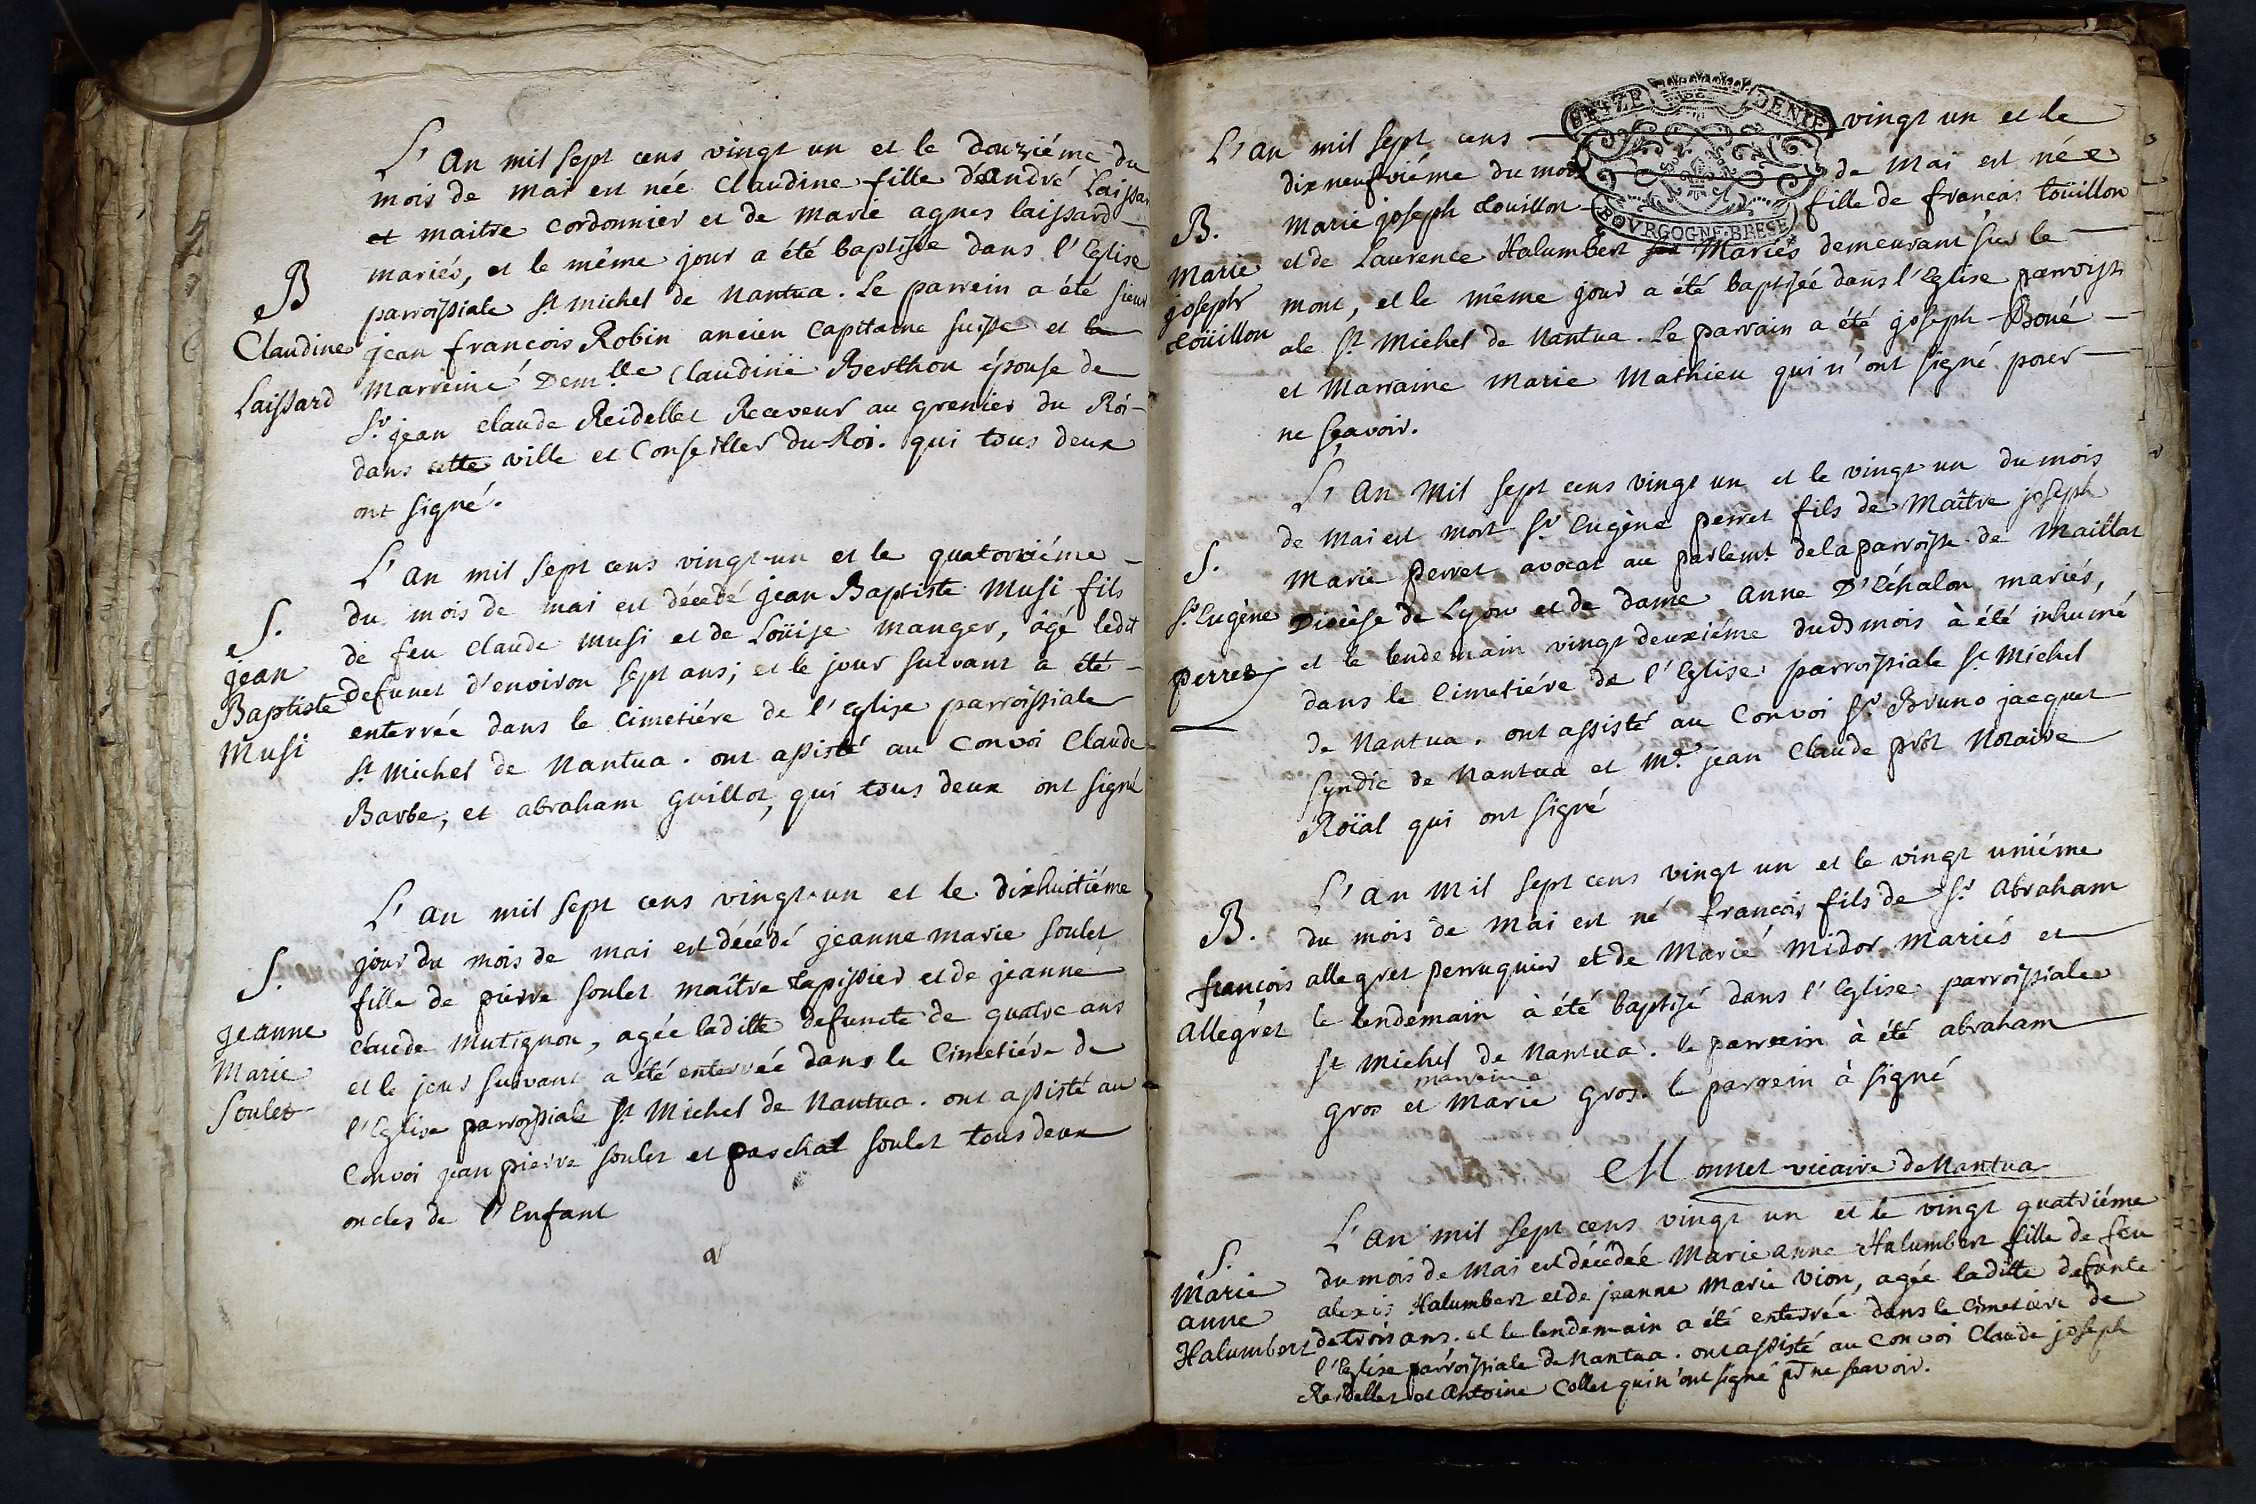 L'An mil sept cens vingt un et le douziéme du
mois de mai est née Claudine fille d'André Laissar
et maitre cordonnier et de marie agnes laissard
B
mariés, et le même jour a été baptisée dans l'Eglise
parroissiale st michel de Nantua. Le parrein a été sieur
Claudine
jean francois Robin ancien capitaine suisse et la
Laissard
Marreine Demlle Claudine Berthou épouse de
Sr jean claude Reidellet Receveur au grenier du Roi
dans cette ville et Conseiller du Roi. qui tous deux
ont signé.
L'an mil sept cens vingt-un et le quatorziéme
S.
du mois de mai est décedé jean Baptiste Musi fils
jean
de feu claude musi et de Loüise manger, âgé ledit
Baptiste
defunct d'environ sept ans; et le jour suivant a été
Musi
enterrée dans le Cimetiére de l'eglise parroissiale
st Michel de Nantua. ont assisté au Convoi Claude
Barbe, et abraham guillot, qui tous deux ont signé
L'an mil sept cens vingt-un et le dixhuitiéme
S.
jour du mois de mai est décédé jeanne marie soulet
fille de pierre soulet maître tapissier et de jeanne
jeanne
claude Mutignon, agée laditte defuncte de quatre ans
Marie
et le jour suivant a été enterrée dans le Cimetiére de
Soulet
l'Eglise parroissiale st Michel de Nantua. ont assisté au
Convoi jean pierre soulet et paschal soulet tous deux
oncles de l'Enfant
GENERALITE
BOVRGOGNE-BRESE
L'an mil sept cens vingt un et le
dix neufviéme du mois de Mai est née
B.
Marie joseph toüillon fille de francas toüillon
Marie
et de Laurence Halumbert Mariés demeurant sur le
joseph
mont, et le même jour a été baptisée dans l'Eglise parroissi
toüillon
ale st Michel de Nantua. Le parrain a été joseph Boné
et Marraine Marie Mathieu qui n'ont signé pour
ne sçavoir.
L'An Mil sept cens vingt un et le vingt un du mois
de Mai est mort Sr Eugène perret fils de Maître joseph
S.
Marie perret avocat au parlemt de la parroisse de Maillat
Sr Eugène
Diocèse de Lyon et de dame Anne D'Léhalon mariés,
perret
et le lendemain vingt deuxiéme dud mois à été inhumé
dans le Cimetiére de l'Eglise parroissiale st Michel
de Nantua. ont assisté au Convoi Sr Bruno jacquet
Syndic de Nantua et Me jean Claude prôt Notaire
Roïal qui ont signé
L'an mil sept cens vingt un et le vingt uniéme
B.
du mois de Mai est né françois fils de Sr Abraham
françois
allegret perruquier et de Marie Midor mariés et
allegret
le lendemain à été baptisé dans l'Eglise parroissiale
st Michel de Nantua. le parrein à été abraham
marreine
gros et Marie gros. le parrein à signé
Monnet vicaire de Nantua
L'an mil sept cens vingt un et le vingt quatriéme
S.
du mois de Mai est décédée Marie anne Halumbert fille de feu
Marie
alexis Halumbert et de jeanne Marie Vion, agée laditte defunte
anne
Halumbert
de trois ans. et le lendemain a été enterrée dans le Cimetiére de
l'Eglise parroissiale de Nantua. ont assisté au Convoi Claude joseph
Reidellet et Antoine Collet qui n'ont signé pr ne sçavoir.